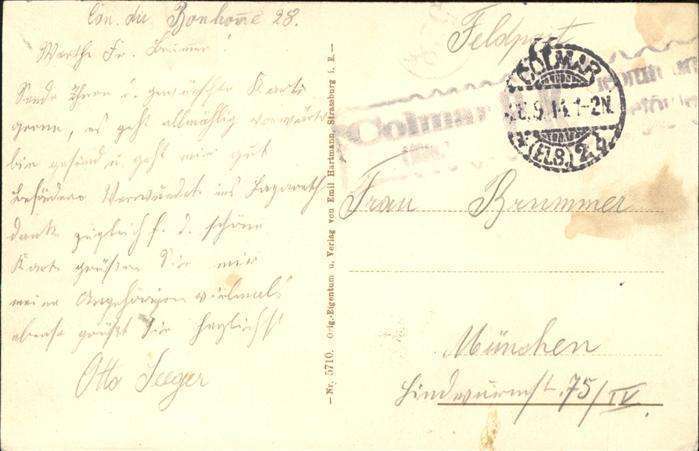 Con. du Bonhome 28.
Werthe Fr. Brummer!
Sende Ihnen d. gewünschte Karte
gerne, es geht allmählig vorwärts
bin gesund u. geht mir gut
befördere Verwundete ins Lazareth
danke zugleich f. d. schöne
Karte grüßen Sie mir
meine Angehörigen vielmals
ebenso grüßt Sie herzlichst
Otto Seeger
– Nr. 5710. Orig.-Eigentum u. Verlag von Emil Hartmann, Strassburg i. E. –
Feldpost
COLMAR
9.14.1-2N.
(ELS.) 2
Colmar
Frau Brummer
München
Lindwurmst. 75/IV.